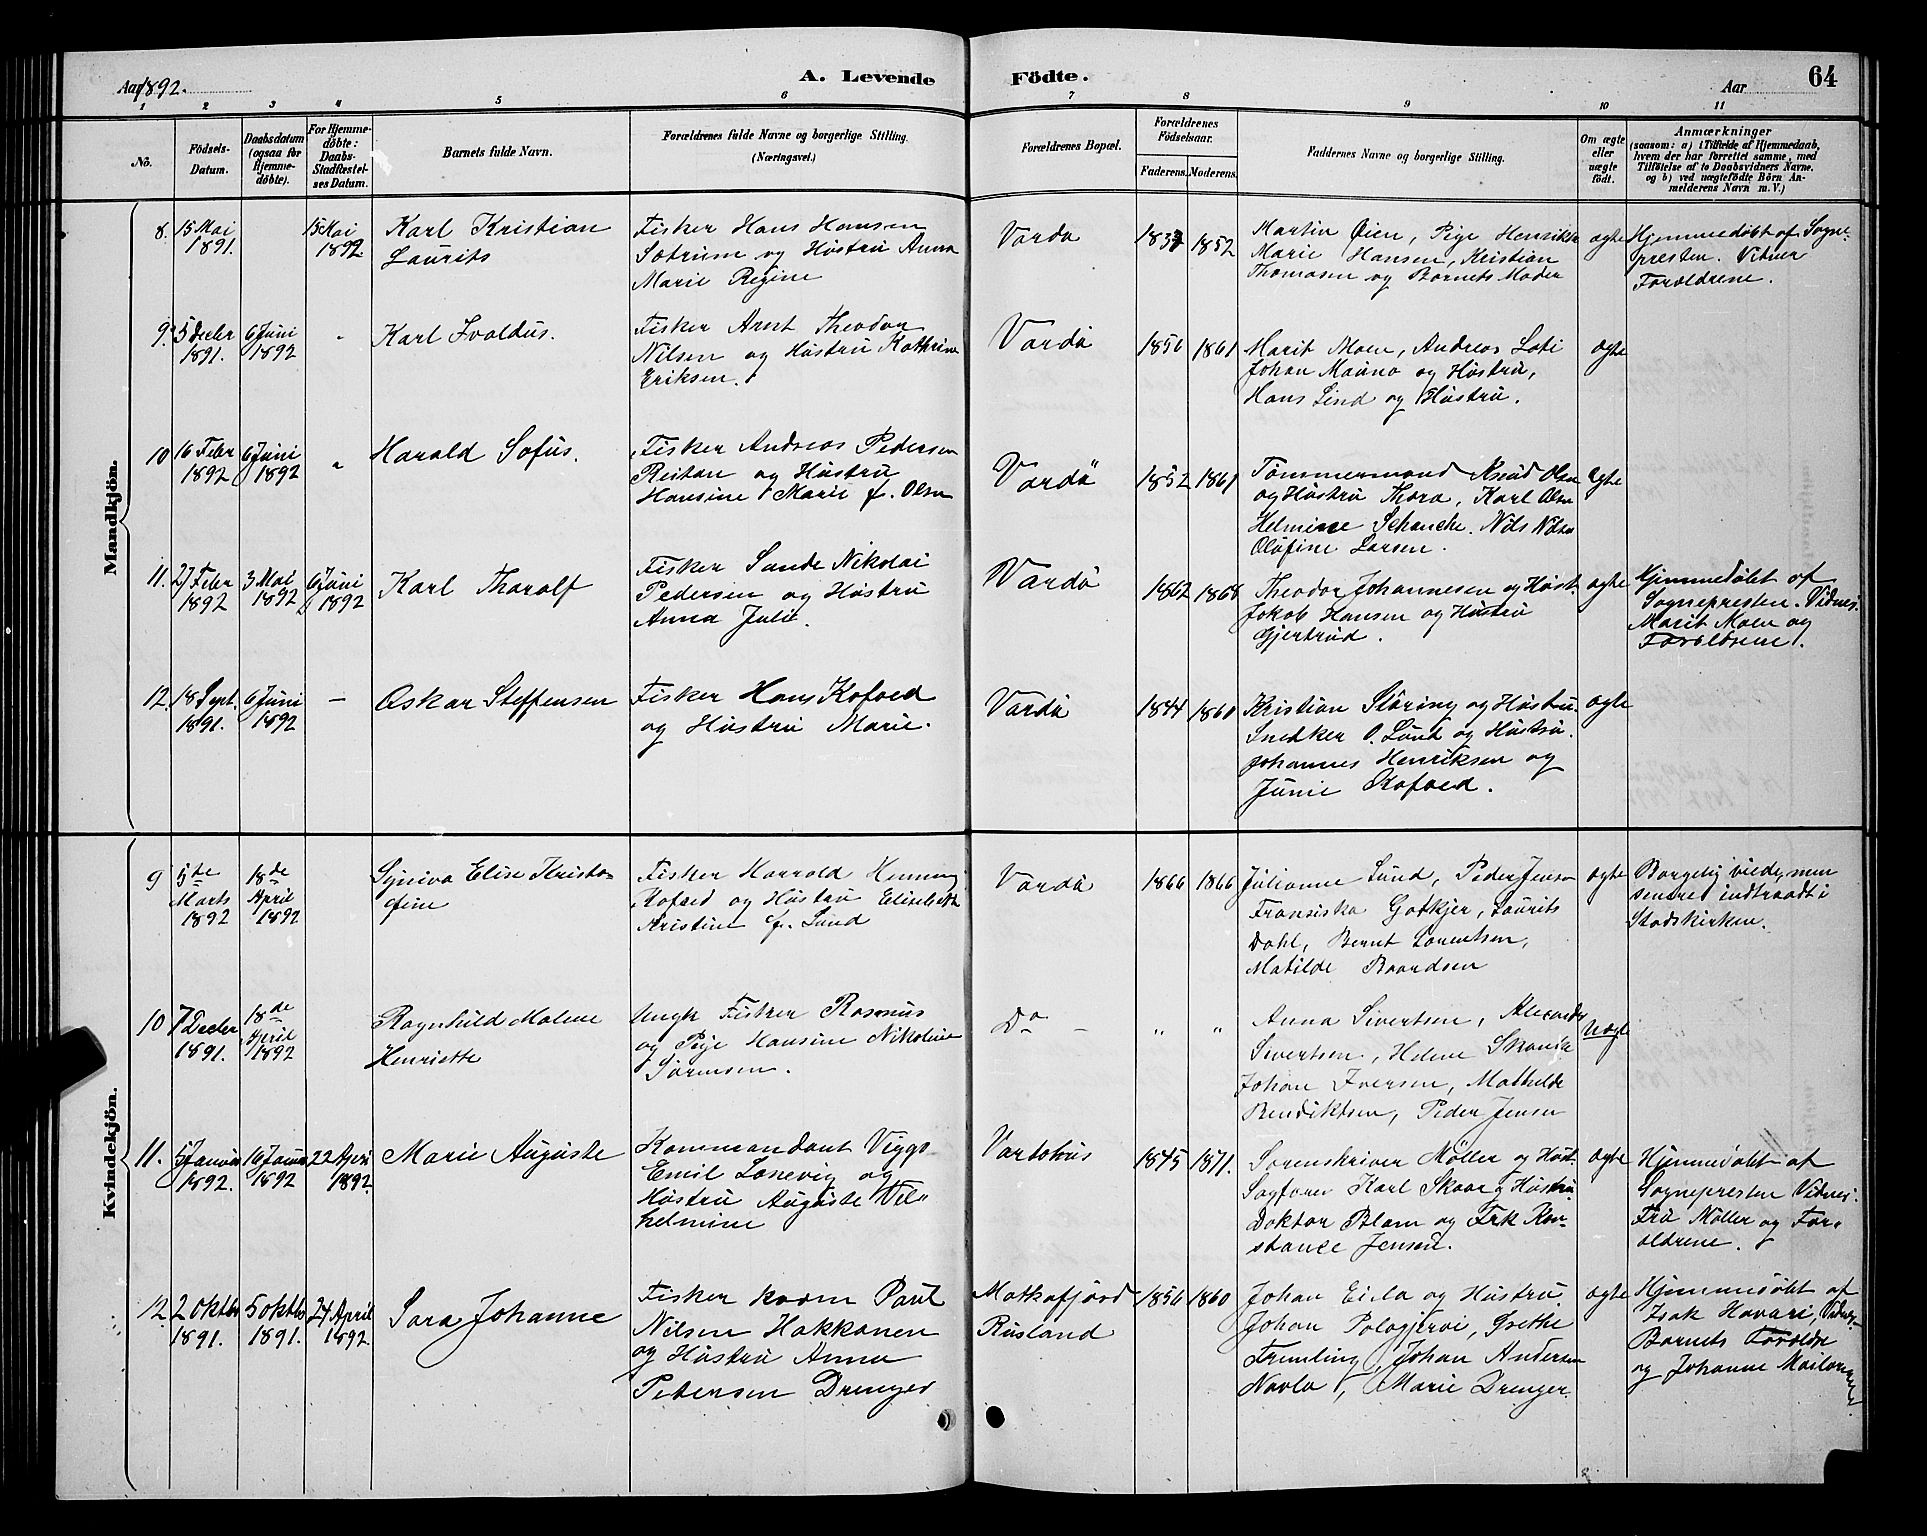 Aar 1892.
A. Levende
Födte.
Aar
64
1 2 3 4 5 6 7 8 9 10 11
No.
Födsels-
Datum.
Daabsdatum
(ogsaa for
Hjemme-
döbte).
For Hjemme-
döbte:
Daabs-
Stadfæstel-
ses Datum.
Barnets fulde Navn.
Forældrenes fulde Navne og borgerlige Stilling.
(Næringsvei.)
Forældrenes Bopæl.
Forældrenes
Födselsaar.
Faderens. Moderens.
Faddernes Navne og borgerlige Stilling.
Om ægte
eller
uægte
födt.
Anmærkninger
(saasom: a) i Tilfælde af Hjemmedaab,
hvem der har forrettet samme, med
Tilföielse af to Daabsvidners Navne.
og b) ved uægtefödte Börn An-
melderens Navn m. V.)
Mandkjön.
8. 15 Mai
1891.
15 Mai
1892
Karl Kristian
Laurits
Fisker Hans Hansen
Sætrum og Hustru Anna
Marie Regine
Vardø
1852
Martin Øien, Pige Henrikke
Marie Hansen, Kristian
Thomasen og Barnets Moder
ægte
Hjemmedøbt af Sogne-
presten. Vidner
Forældrene.
9. 5 Decbr
1891.
6 Juni
1892
"
Karl Ivaldus.
Fisker Arnt Theodor
Nilsen og Hustru Kathrine
Eriksen.
Vardø
1856 1861
Marit Moen, Andreas Lati
Johan Mauno og Hustru,
Hans Lind og Hustru.
ægte
10 16 Febr
1892
6 Juni
1892
"
Harald Sofus.
Fisker Andreas Pedersen
Ristan og Hustru
Hansine Marie f. Olsen
Vardö
1852 1861
Tømmermand Knud Olsen
og Hustru Thora, Karl Olsen
Helmine Schanche. Nils Nilsen
Olufine Larsen.
Ægte
11. 27 Febr
1892
3 Mai
1892
6 Juni
1892
Karl Tharalf
Fisker Sunde Nikolai
Pedersen og Hustru
Anna Julie.
Vardø
1862 1868
Theodor Johannesen og Hust.
Jakob Hansen og Hustru
Gjertrud.
ægte
Hjemmedøbt af
Sognepresten. Vidner
Marit Moen og
Forældrene.
12. 18 Sept.
1891.
6 Juni
1892
—
Oskar Steffensen
Fisker Hans Kofoed
og Hustru Marie.
Vardø
1844 1860
Kristian Støring og Hustru.
Snedker O. Lund og Hustru.
Johannes Henriksen og
Junie Kofoed.
ægte
Kvindekjön.
9 5te
Marts
1892
18de
April
1892
Syniva Elise Kristo-
fine
Fisker Harald Henning
Kofoed og Hustru Elisabeth
Kristine f. Lund
Vardø
1866 1866
Julianne Lund, Peder Jensen
Fransiska Gotkjer, Laurits
Dahl, Bernt Lorentsen,
Matilde Baardsen
ægte
Borgelig viede, men
senere indtraadt i
Stadskirken.
10 7 Decbr
1891.
18de
April
1892
Ragnhild Malene
Henriette
Ungk Fisker Rasmus
og Pige Hansine Nikoline
Sørensen.
Do –
" "
Anna Sivertsen, Alexander
Sivertsen, Helene Skanck
Johan Iversen, Mathilde
Bendiktsen, Peder Jensen
uægte
11. 5 Januar
1892.
16 Januar
1892
22 April
1892.
Marie Auguste
Kommandant Viggo
Emil Lanevig og
Hustru Auguste Vil-
helmine
Vardøhus
1845 1871.
Sorenskriver Møller og Hust.
Sagfører Karl Skaar og Hustru
Doktor Blom og Frk Kon-
stance Jensen.
ægte
Hjemmedøbt af
Sognepresten Vidner
Fru Møller og For-
ældrene.
12 2 Oktbr
1891.
5 Oktbr
1891.
24 April
1892
Sara Johanne
Fisker kvæn Paul
Nilsen Hakkonen
og Hustru Anna
Petersen Drenger
Motkafjord
Rusland
1856 1860
Johan Eila og Hustru
Johan Palojervi, Grethe
Tremling, Johan Andersen
Navla, Marie Drenger
ægte
Hjemmedøbt af
Isak Havari, Vidner
Barnets Forældre
og Johanne